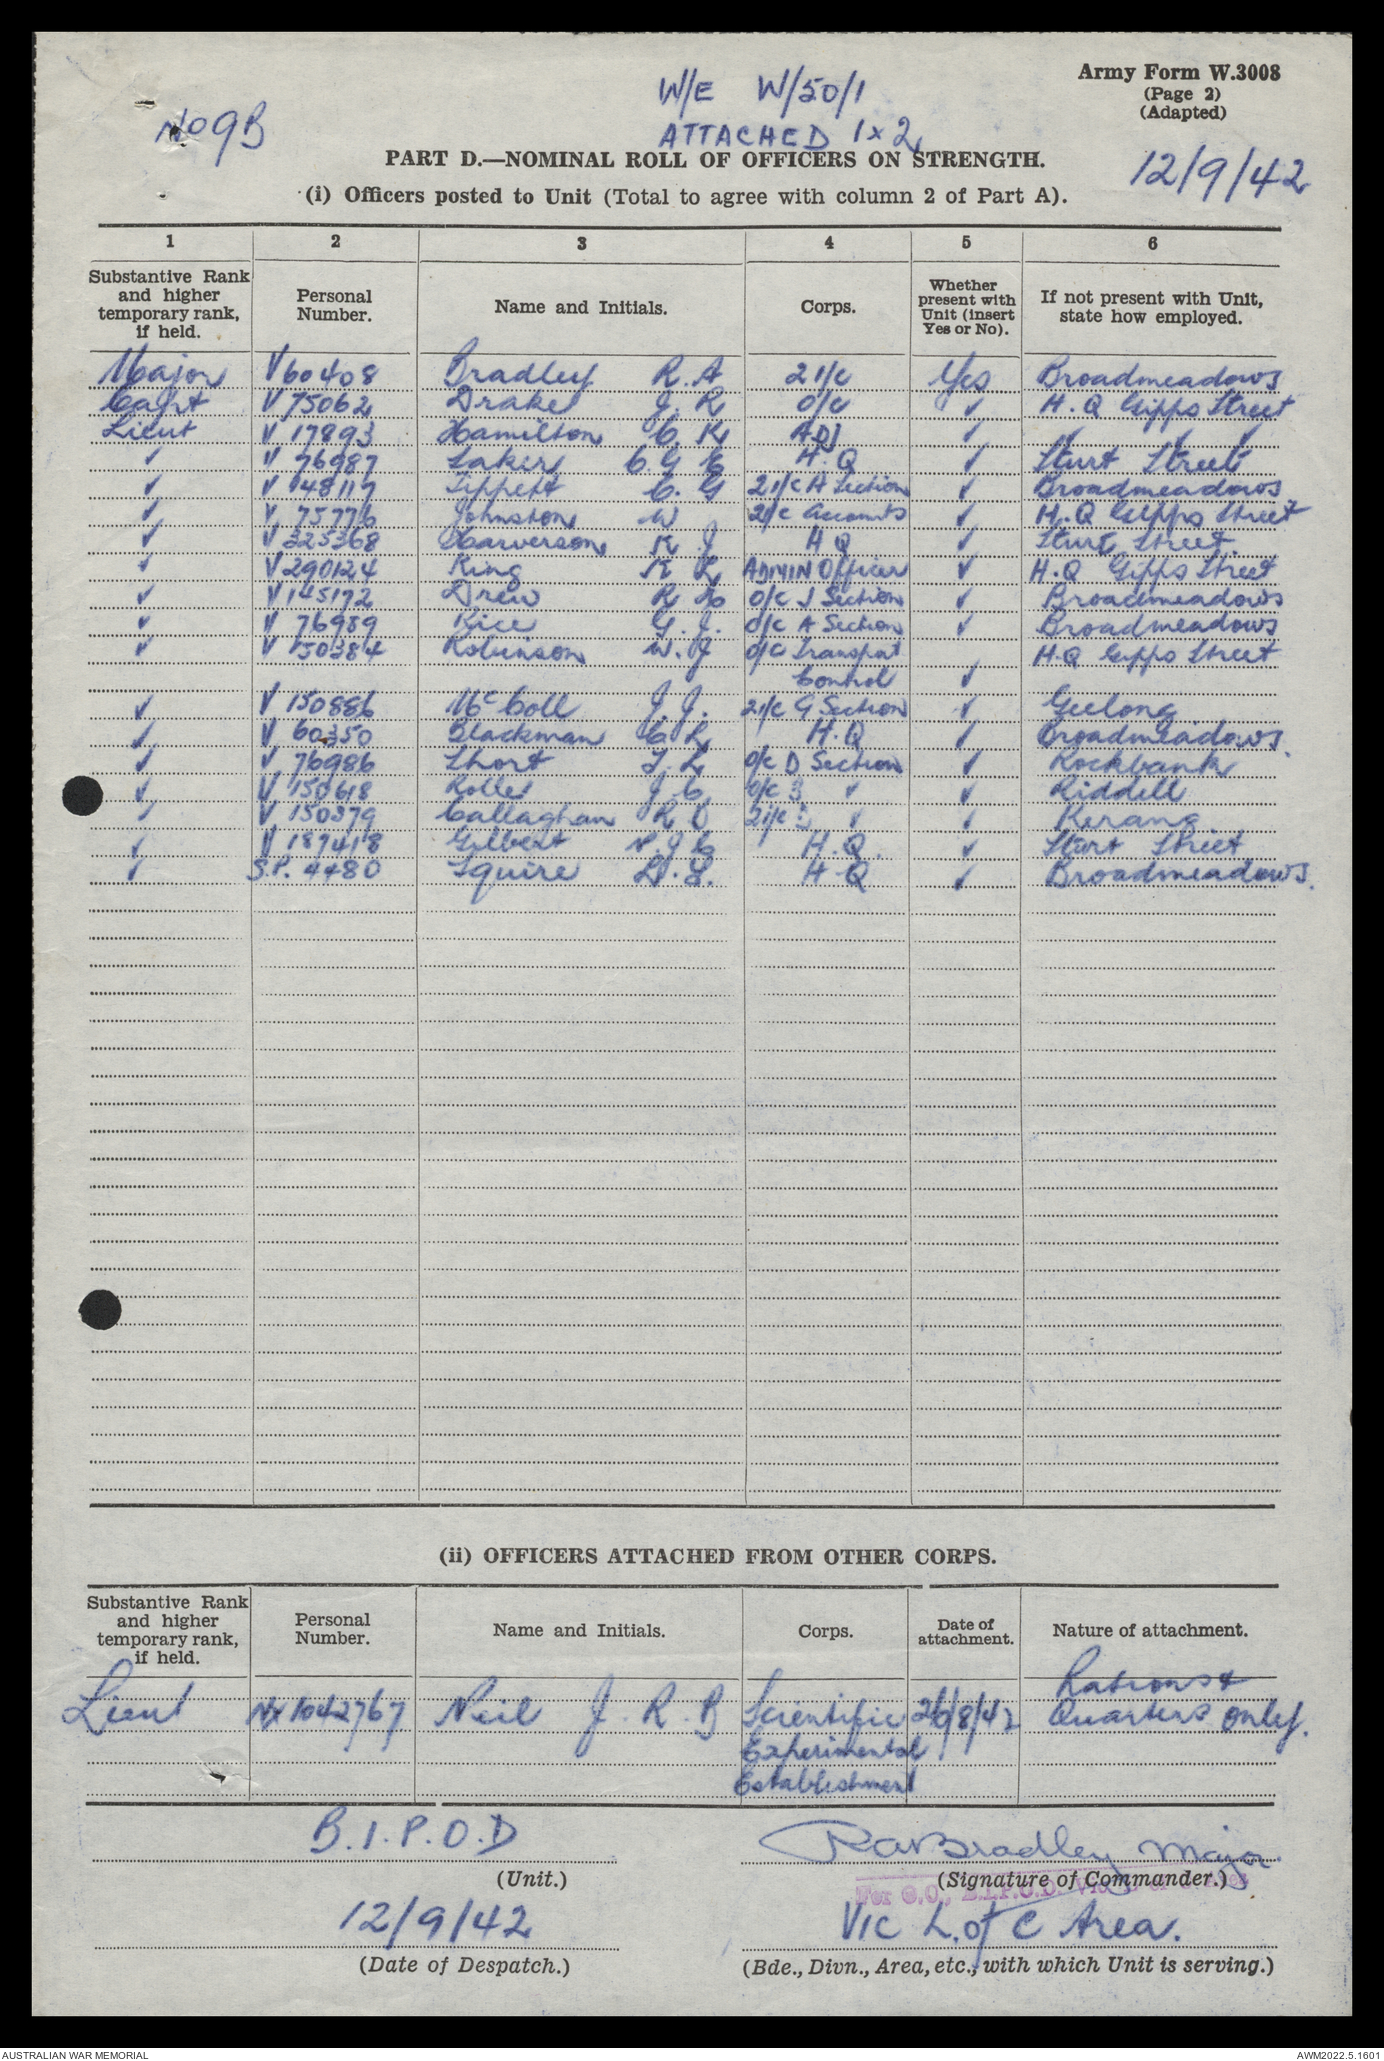 Army Form W.3008
(Page 2)
(Adapted)
No 9B
W/E W/50/1
ATTACHED 1 x 2
12/9/42
PART D.—NOMINAL ROLL OF OFFICERS ON STRENGTH.
(i) Officers posted to Unit (Total to agree with column 2 of Part A).
1 2 3 4 5 6
Substantive Rank and higher temporary rank, if held. Personal Number. Name and Initials. Corps. Whether present with Unit (insert Yes or No). If not present with Unit, state how employed.
Major V60408 Bradley R.A 2 i/c Yes Broadmeadows
Capt V 75062 Drake J. R O/C ✓ H.Q Gipps Street
Lieut V 17893 Hamilton C. K ADJ ✓ ✓ ✓ ✓
✓ V 76987 Laker C.G E H.Q ✓ Sturt Street
✓ V 148117 Tippett C. G 2 i/c A Section ✓ Broadmeadows
✓ V 75776 Johnston W 2i/c Accounts ✓ H.Q Gipps Street
✓ V 325368 Harverson K J H Q ✓ Sturt Street
✓ V290124 King K L ADMIN Officer ✓ H.Q Gipps Street
✓ V145172 Drew R O/C J Section ✓ Broadmeadows
✓ V 76989 Rice G. J. O/C A Section ✓ Broadmeadows
✓ V 50384 Robinson W. J O/C Transport H.Q Gipps Street
Control ✓
✓ V 150886 McColl J. J. 2i/c G Section ✓ Geelong
✓ V 60350 Blackman C L H.Q ✓ Broadmeadows.
✓ V 76986 Short T. L O/C D Section ✓ Rockbank
✓ V 150618 Rolle J. C O/C ✓ ✓ Riddell
✓ V 150379 Callaghan R D 2i/c ✓ ✓ Kerang
✓ V 187418 Gilbert N. J C H.Q. ✓ Sturt Street
✓ S.P. 4480 Squire D. L. H-Q ✓ Broadmeadows.
(ii) OFFICERS ATTACHED FROM OTHER CORPS.
Substantive Rank and higher temporary rank, if held. Personal Number. Name and Initials. Corps. Date of attachment. Nature of attachment.
Rations &
Lieut NX1042767 Neil J. R. B Scientific 26/8/42 Quarters only.
Experimental
Establishment
B.I.P.O.D
(Unit.)
12/9/42
(Date of Despatch.)
RA Bradley Major.
(Signature of Commander.)
For O.C., B.I.P.O.D.
VIC L. of C Area.
(Bde., Divn., Area, etc., with which Unit is serving.)
AUSTRALIAN WAR MEMORIAL
AWM2022.5.1601